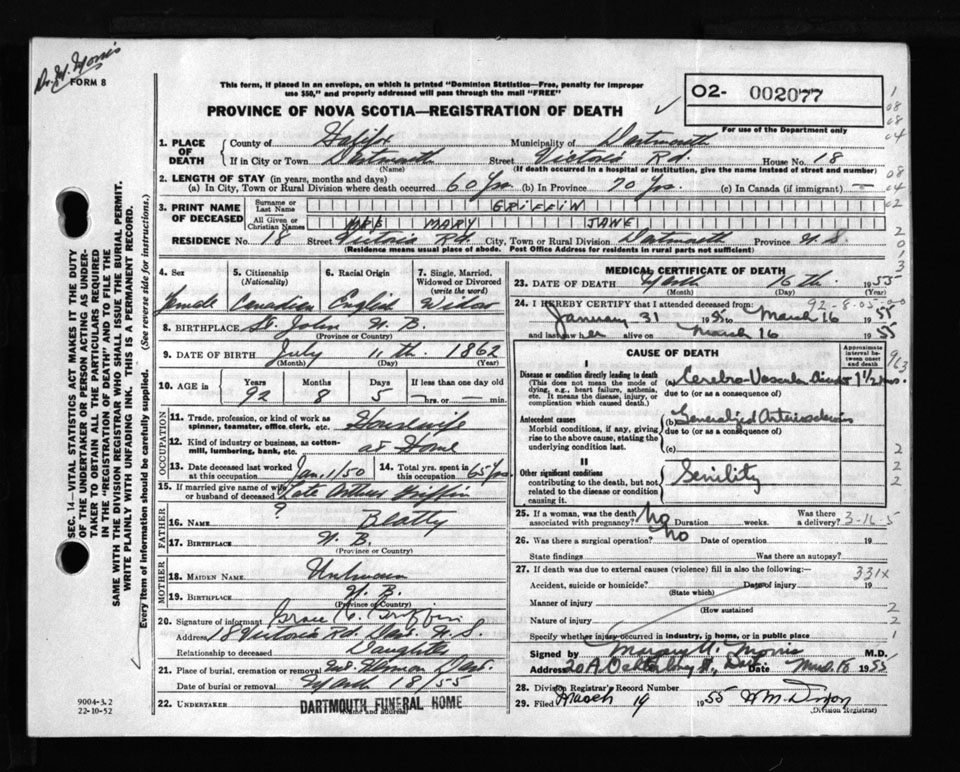 Dr. M. Morris
FORM 8
This form, if placed in an envelope, on which is printed "Dominion Statistics—Free, penalty for improper
use $50," and properly addressed will pass through the mail "FREE"
PROVINCE OF NOVA SCOTIA—REGISTRATION OF DEATH
O2- 002077
For use of the Department only
1. PLACE OF DEATH
County of Halifax Municipality of Dartmouth
If in City or Town Dartmouth Street Victoria Rd. House No. 18
(Name) (If death occurred in a hospital or institution, give the name instead of street and number)
2. LENGTH OF STAY (in years, months and days)
(a) In City, Town or Rural Division where death occurred 60 Yrs. (b) In Province 70 Yrs. (c) In Canada (if immigrant) —
3. PRINT NAME OF DECEASED
Surname or Last Name GRIFFIN
All Given or Christian Names MRS MARY JANE
RESIDENCE No. 18 Street Victoria Rd. City, Town or Rural Division Dartmouth Province N.S.
(Residence means usual place of abode. Post Office Address for residents in rural parts not sufficient)
4. Sex
Female
5. Citizenship
(Nationality)
Canadian
6. Racial Origin
English
7. Single, Married,
Widowed or Divorced
(write the word)
Widow
8. BIRTHPLACE St. John N.B.
(Province or Country)
9. DATE OF BIRTH July 11th. 1862
(Month) (Day) (Year)
10. AGE
Years Months Days If less than one day old
92 8 5 —hrs. or— min.
OCCUPATION
11. Trade, profession, or kind of work as
spinner, teamster, office clerk, etc. Housewife
12. Kind of industry or business, as cotton-
mill, lumbering, bank, etc. at Home
13. Date deceased last worked
at this occupation Jan 1/50
14. Total yrs. spent in
this occupation 65 Yrs.
15. If married give name of wife
or husband of deceased Late Arthur Griffin
FATHER
16. NAME ? Beatty
17. BIRTHPLACE N.B.
(Province or Country)
MOTHER
18. MAIDEN NAME Unknown
19. BIRTHPLACE N.B.
(Province or Country)
20. Signature of informant Grace C. Griffin
Address 18 Victoria Rd. Dart. N.S.
Relationship to deceased Daughter
21. Place of burial, cremation or removal Mt. Hermon Dart.
Date of burial or removal March 18/55
22. UNDERTAKER DARTMOUTH FUNERAL HOME
(Name and address)
MEDICAL CERTIFICATE OF DEATH
23. DATE OF DEATH March 16th. 1955
(Month) (Day) (Year)
24. I HEREBY CERTIFY that I attended deceased from: 92-8-05-00
January 31 1955 to March 16 1955
and last saw her alive on March 16 1955
CAUSE OF DEATH
Approximate interval between onset and death
I
Disease or condition directly leading to death
(This does not mean the mode of
dying, e.g., heart failure, asthenia,
etc. It means the disease, injury, or
complication which caused death.)
(a) Cerebro-Vascular Accident 1 1/2 mos.
due to (or as a consequence of)
Antecedent causes
Morbid conditions, if any, giving
rise to the above cause, stating the
underlying condition last.
(b) Generalized Arteriosclerosis
due to (or as a consequence of)
(c)
II
Other significant conditions
contributing to the death, but not
related to the disease or condition
causing it.
Senility
25. If a woman, was the death
associated with pregnancy? No Duration weeks. Was there
a delivery? 3-16-5
26. Was there a surgical operation? No Date of operation 19
State findings Was there an autopsy?
27. If death was due to external causes (violence) fill in also the following:— 331X
Accident, suicide or homicide? Date of injury 19
(State which)
Manner of injury
(How sustained
Nature of injury
Specify whether injury occurred in industry, in home, or in public place
Signed by Margary W. Morris M.D.
Address Date Mar. 18 1955
28. Division Registrar's Record Number
29. Filed March 19 1955 H M. Dixon
(Division Registrar)
SEC. 14—VITAL STATISTICS ACT MAKES IT THE DUTY
OF THE UNDERTAKER OR PERSON ACTING AS UNDER-
TAKER TO OBTAIN ALL THE PARTICULARS REQUIRED
IN THE "REGISTRATION OF DEATH" AND TO FILE THE
SAME WITH THE DIVISION REGISTRAR WHO SHALL ISSUE THE BURIAL PERMIT.
WRITE PLAINLY WITH UNFADING INK. THIS IS A PERMANENT RECORD.
Every item of information should be carefully supplied. (See reverse side for instructions.)
9004-3.2
22-10-52